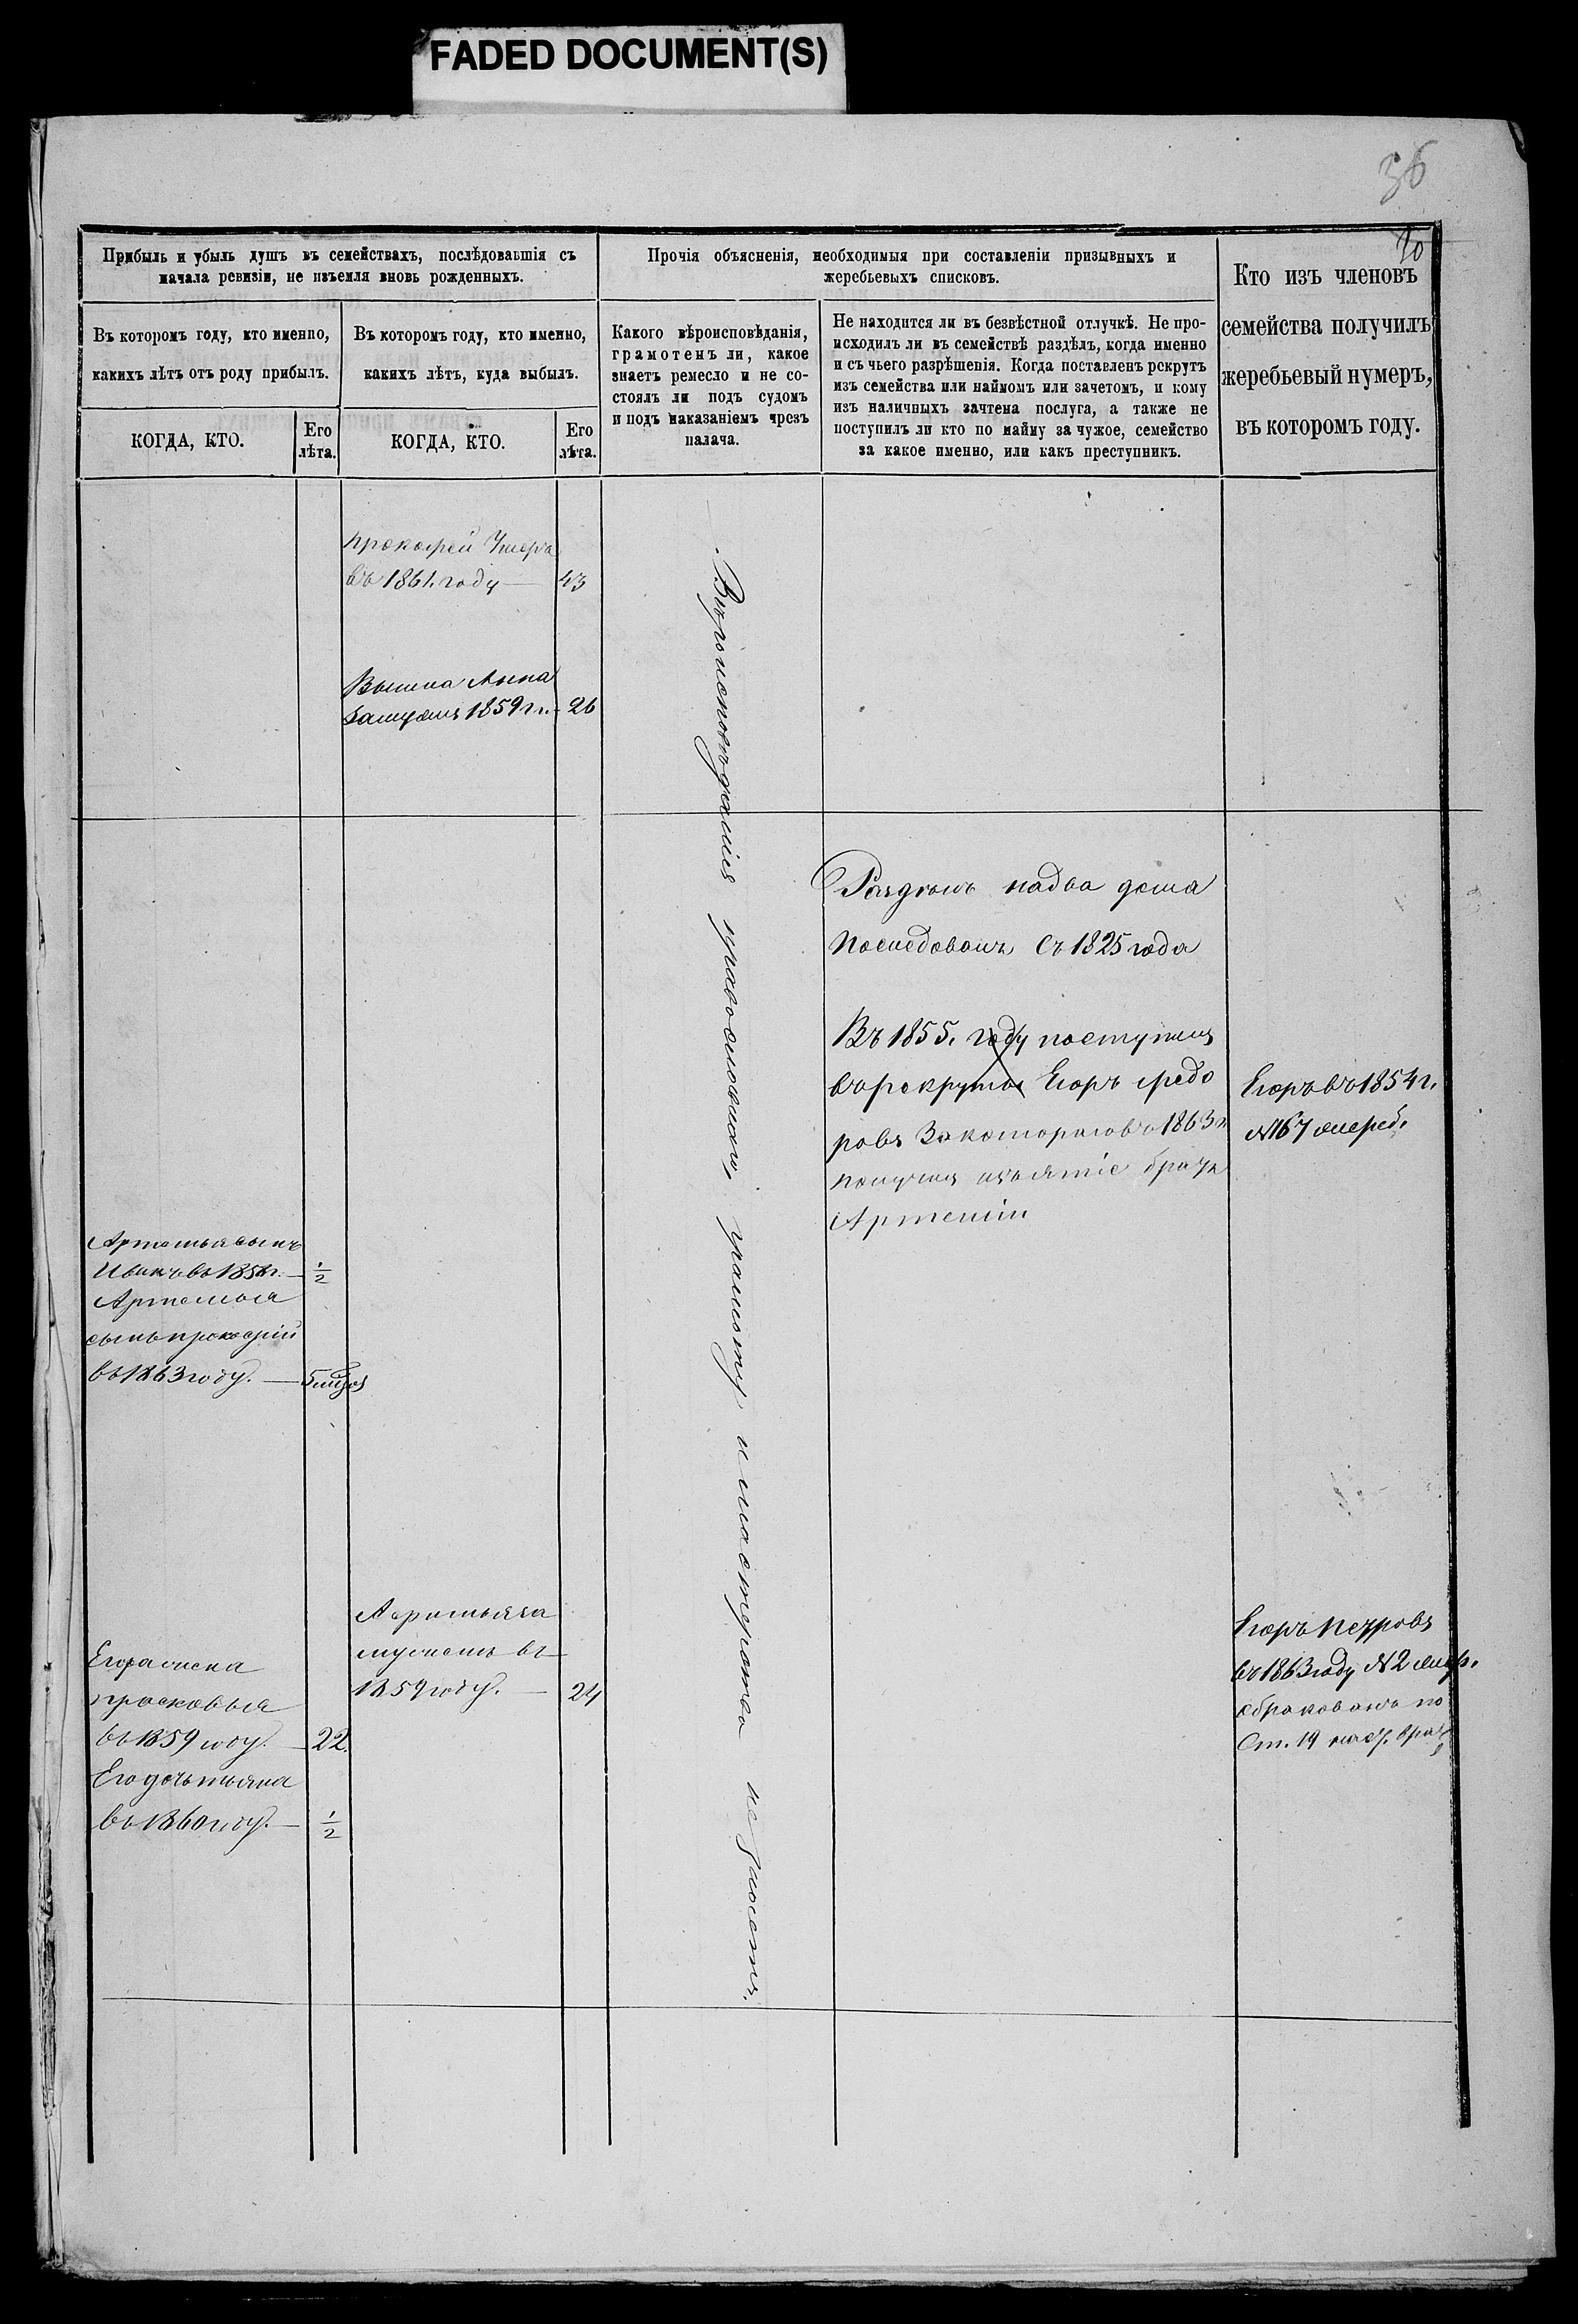 FADED DOCUMENT(S)
36
10
Прибыль и убыль душъ въ семействахъ, послѣдовавшія съ
начала ревизіи, не изъемля вновь рожденныхъ.
Въ которомъ году, кто именно,
какихъ лѣтъ отъ роду прибылъ.
КОГДА, КТО.
Его
лѣта.
Въ которомъ году, кто именно,
какихъ лѣтъ, куда выбылъ.
КОГДА, КТО.
Его
лѣта.
Прочія объясненія, необходимыя при составленіи призывныхъ и
жеребьевыхъ списковъ.
Какого вѣроисповѣданія,
грамотенъ ли, какое
знаетъ ремесло и не со-
стоялъ ли подъ судомъ
и подъ наказаніемъ чрезъ
палача.
Не находится ли въ безвѣстной отлучкѣ. Не про-
исходилъ ли въ семействѣ раздѣлъ, когда именно
и съ чьего разрѣшенія. Когда поставленъ рекрутъ
изъ семейства или наймомъ или зачетомъ, и кому
изъ наличныхъ зачтена послуга, а также не
поступилъ ли кто по найму за чужое, семейство
за какое именно, или какъ преступникъ.
Кто изъ членовъ
семейства получилъ
жеребьевый нумеръ,
въ которомъ году.
прокофей Умеръ
въ 1861. году — 43
Вышла Анна
замужъ 1859 г. - 26
Вѣроисповѣданія православнаго, грамоту и мастерства не знаютъ.
Раздѣлъ надва дома
последовалъ Съ 1825 года
Въ 1855. году поступилъ
въ рекруты Егоръ Федо
ровъ За котораговъ 1863 г
получилъ изъятіе братъ
Артемій
Егоръ въ 1854 г.
№ 67 жереб.
Артемья сынъ
Иванъ въ 1858 г. — 1/2
Артемья
сынъ прокофій
въ 1863 году. —
за
мужемъ въ
1859 году. — 24
Егора жена
прасковья
въ 1859 году. — 22.
Его дочь
въ 1860 году. — 1/2
Егоръ Петровъ
въ 1863 году № 2 жер.
обракованъ по
Ст. 19